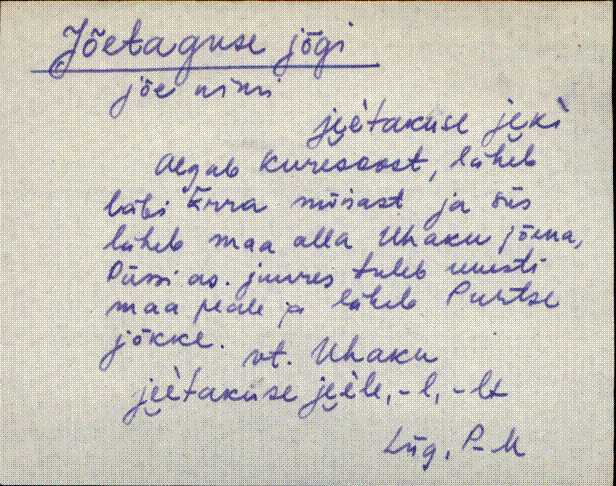 Jõetaguse jõgi
jõe nimi
jeètakuse jeki
Algab Kuresoost, läheb
läbi Erra mõisast ja siis
läheb maa alla Uhaku jõena,
Püssi as. juures tuleb uuesti
maa peale ja läheb Purtse
jõkke.
vt. Uhaku
jeètakuse jeèle, -l, -lt
Lüg, P-M